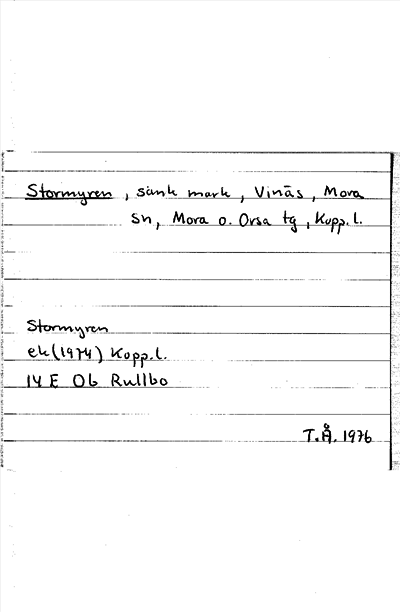 Stormyren, sänk mark, Vinäs, Mora
sn, Mora o. Orsa tg, Kopp. l.
Stormyren
ek (1974) Kopp. l.
14 E Ob Rullbo
T.Å. 1976